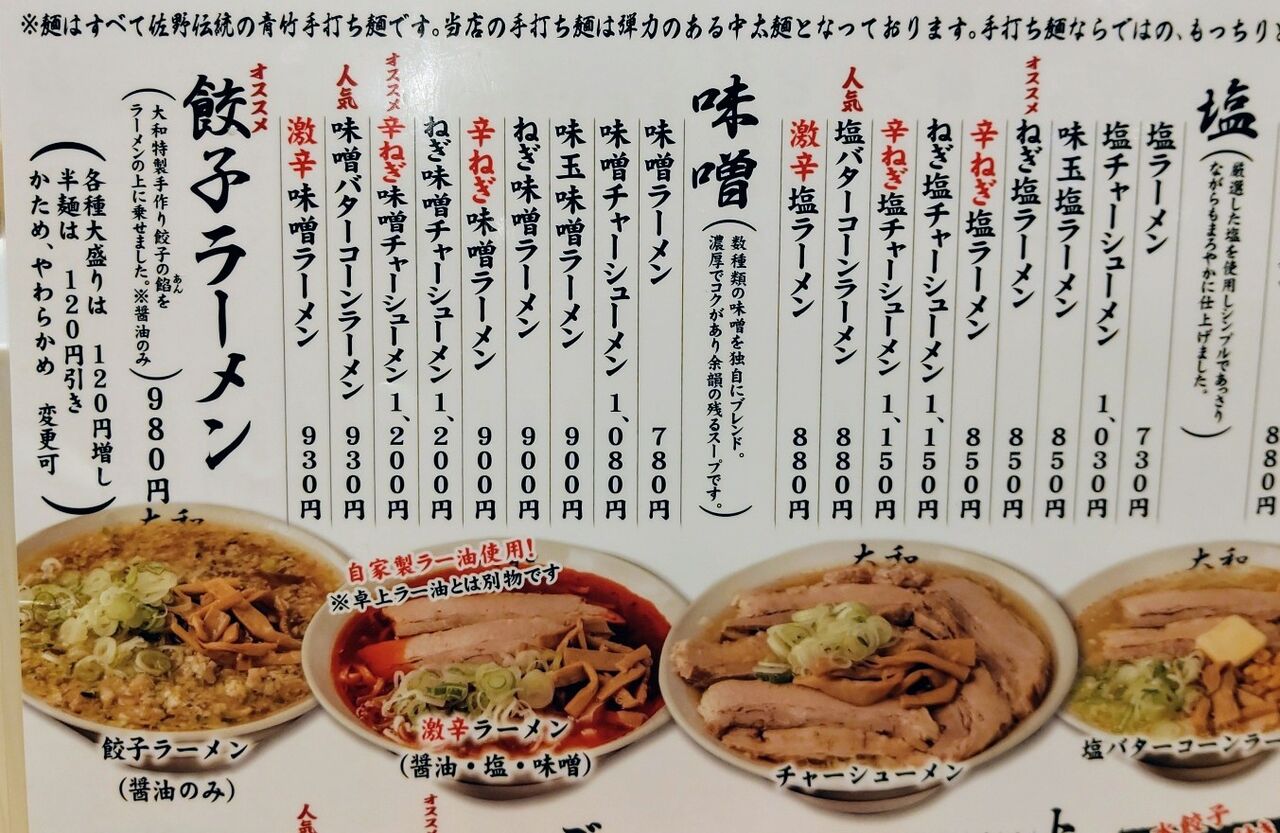 ※麺はすべて佐野伝統の青竹手打ち麺です。当店の手打ち麺は弾力のある中太麺となっております。手打ち麺ならではの、もっちり
880円
塩
(厳選した塩を使用しシンプルであっさり
ながらもまろやかに仕上げました。)
塩ラーメン 730円
塩チャーシューメン 1,030円
味玉塩ラーメン 850円
オススメ
ねぎ塩ラーメン 850円
辛ねぎ塩ラーメン 850円
ねぎ塩チャーシューメン 1,150円
辛ねぎ塩チャーシューメン 1,150円
人気
塩バターコーンラーメン 880円
激辛塩ラーメン 880円
味噌
(数種類の味噌を独自にブレンド。
濃厚でコクがあり余韻の残るスープです。)
味噌ラーメン 780円
味噌チャーシューメン 1,080円
味玉味噌ラーメン 900円
ねぎ味噌ラーメン 900円
辛ねぎ味噌ラーメン 900円
ねぎ味噌チャーシューメン 1,200円
オススメ
辛ねぎ味噌チャーシューメン 1,200円
人気
味噌バターコーンラーメン 930円
激辛味噌ラーメン 930円
オススメ
餃子ラーメン
(大和特製手作り餃子の餡を
あん
ラーメンの上に乗せました。※醤油のみ) 980円
(各種大盛りは 120円増し
半麺は 120円引き
かため、やわらかめ 変更可)
大和
餃子ラーメン
(醤油のみ)
自家製ラー油使用!
※卓上ラー油とは別物です
激辛ラーメン
(醤油・塩・味噌)
大和
チャーシューメン
大和
塩バターコーンラー
人気
オスス